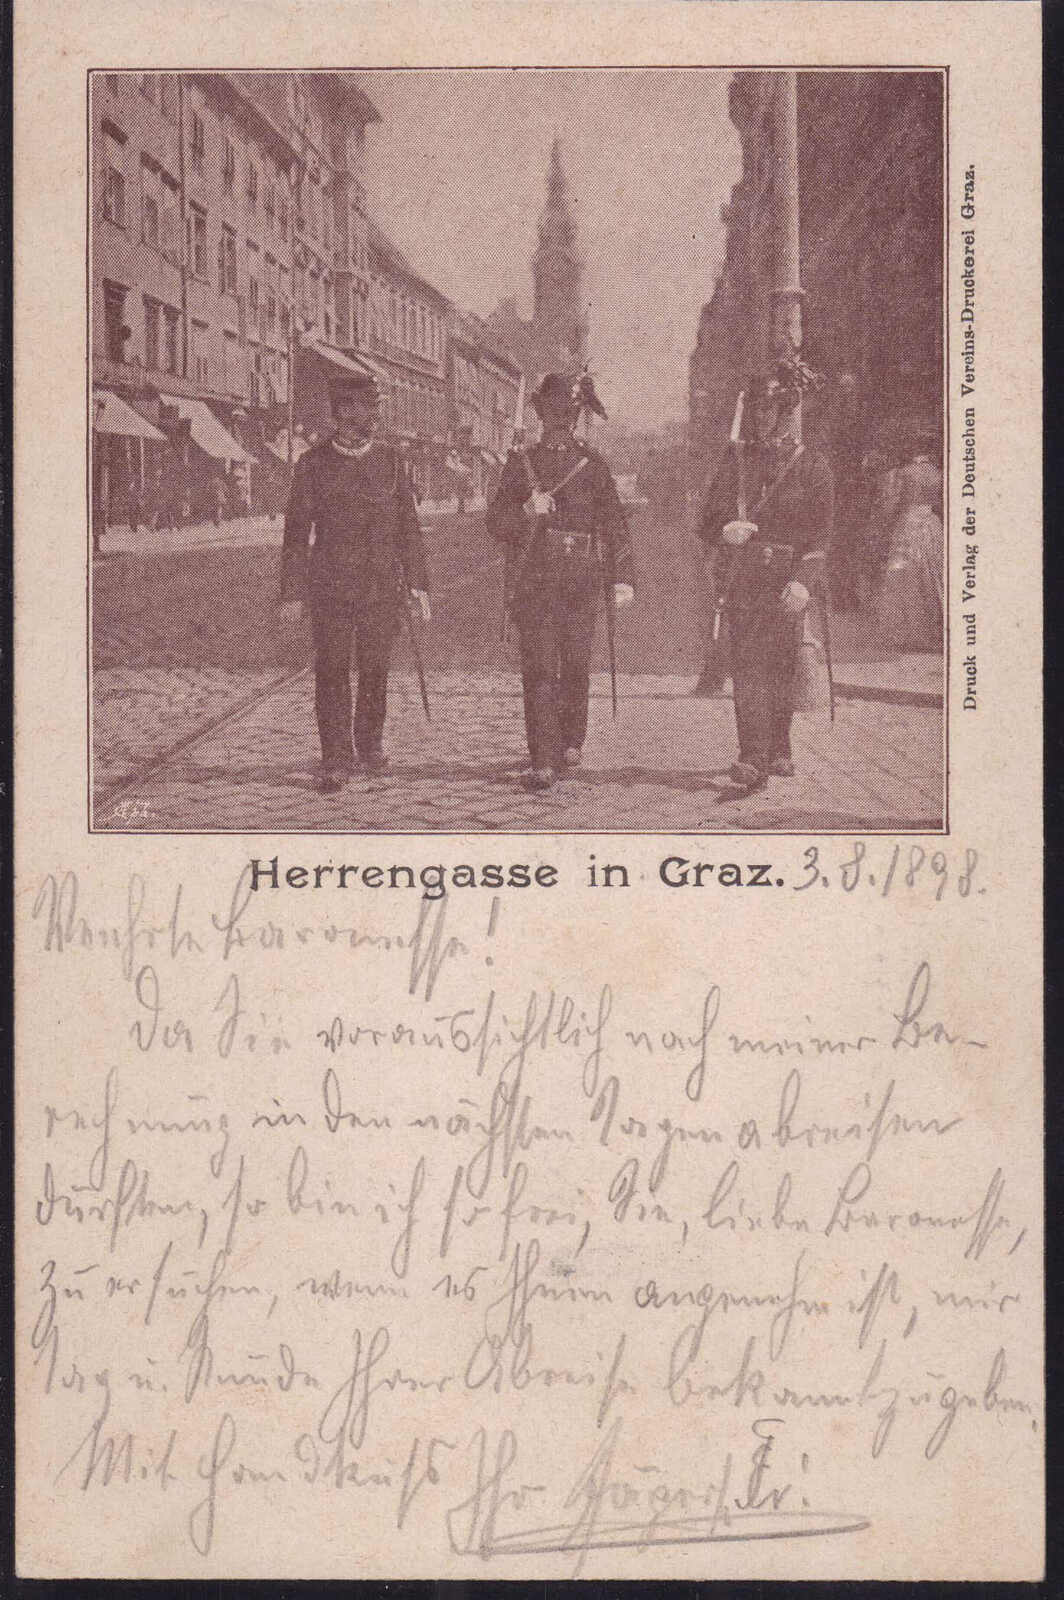 Druck und Verlag der Deutschen Vereins-Druckerei Graz.
Herrengasse in Graz. 3.8.1898.
Verehrte Baronesse!
Da Sie voraussichtlich nach meiner Be-
rechnung in den nächsten Tagen abreisen
dürften, so bin ich so frei, Sie, liebe Baronesse,
zu ersuchen, wenn es Ihnen angenehm ist, mir
Tag u. Stunde Ihrer Abreise bekanntzugeben.
Mit Handkuss Ihr